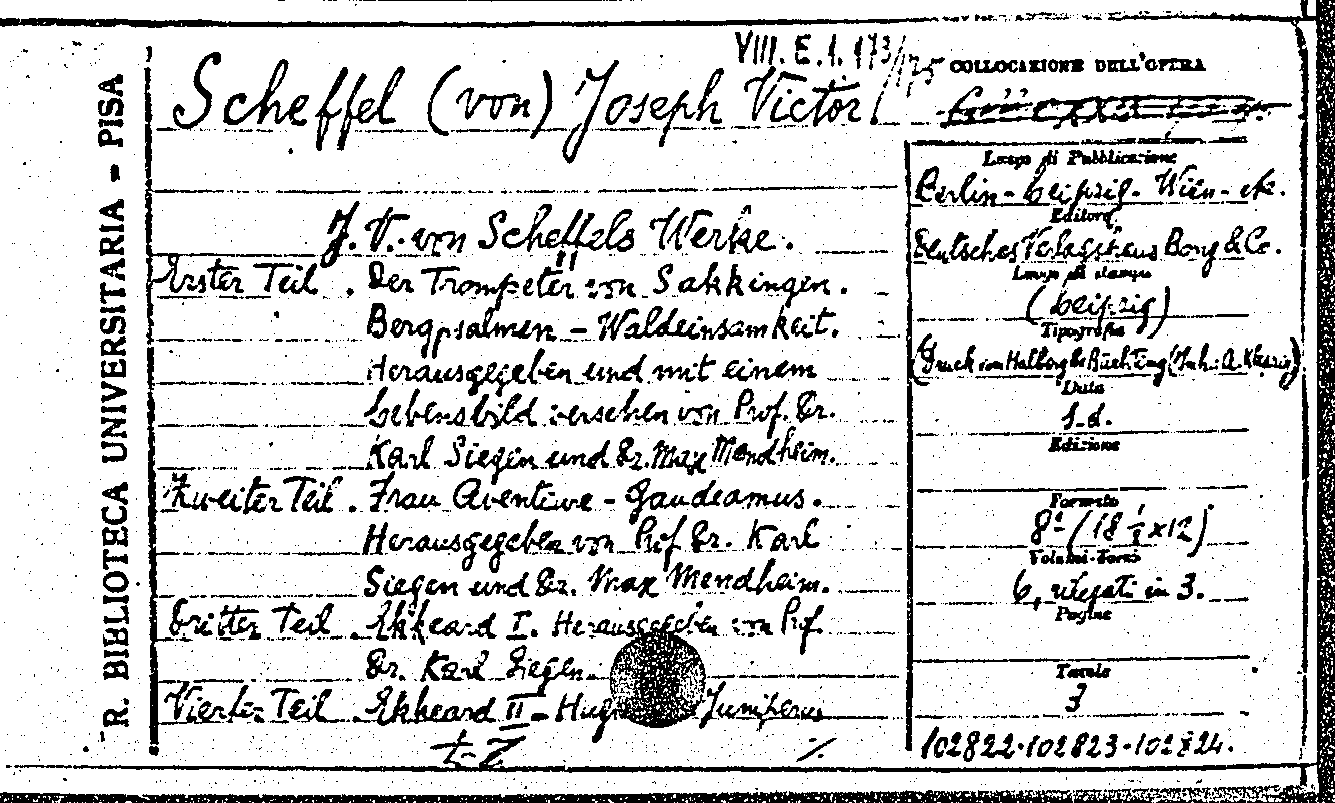 R. BIBLIOTECA UNIVERSITARIA - PISA
VIII. E. 1. 173/175
COLLOCAZIONE DELL'OPERA
Scheffel (von) Joseph Victor
J. V. von Scheffels Werke.
Erster Teil . Der Trompeter von Säkkingen.
Bergpsalmen - Waldeinsamkeit.
Herausgegeben und mit einem
Lebensbild versehen von Prof. Dr.
Karl Siegen und Dr. Max Mendheim.
Zweiter Teil . Frau Aventiure - Gaudeamus.
Herausgegeben von Prof. Dr. Karl
Siegen und Dr. Max Mendheim.
Dritter Teil . Ekkeard I. Herausgegeben von Prof.
Dr. Karl Siegen.
Vierter Teil . Ekkeard II - Juniperus
%
Luogo di Pubblicazione
Berlin - Leipzig - Wien - etc.
Editore
Deutsches Verlagshaus Bong & Co.
Luogo di stampa
(Leipzig)
Tipografia
(Druck von (Inh: A.
Data
s.d.
Edizione
Formato
8º (18 ½ x 12)
Volumi-Tomi
6, rilegati in 3.
Pagine
Tavole
3
102822-102823-102824.